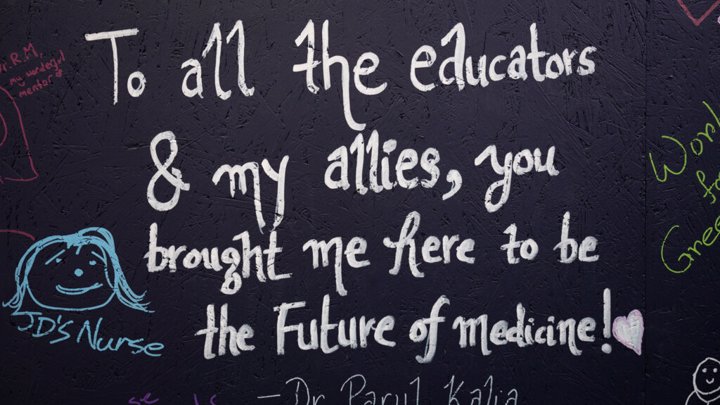 To all the educators
& my allies, you
brought me here to be
the Future of medicine!
—Dr Parul Kalia
Dr. R.M,
my wonderful
mentor
JD'S Nurse